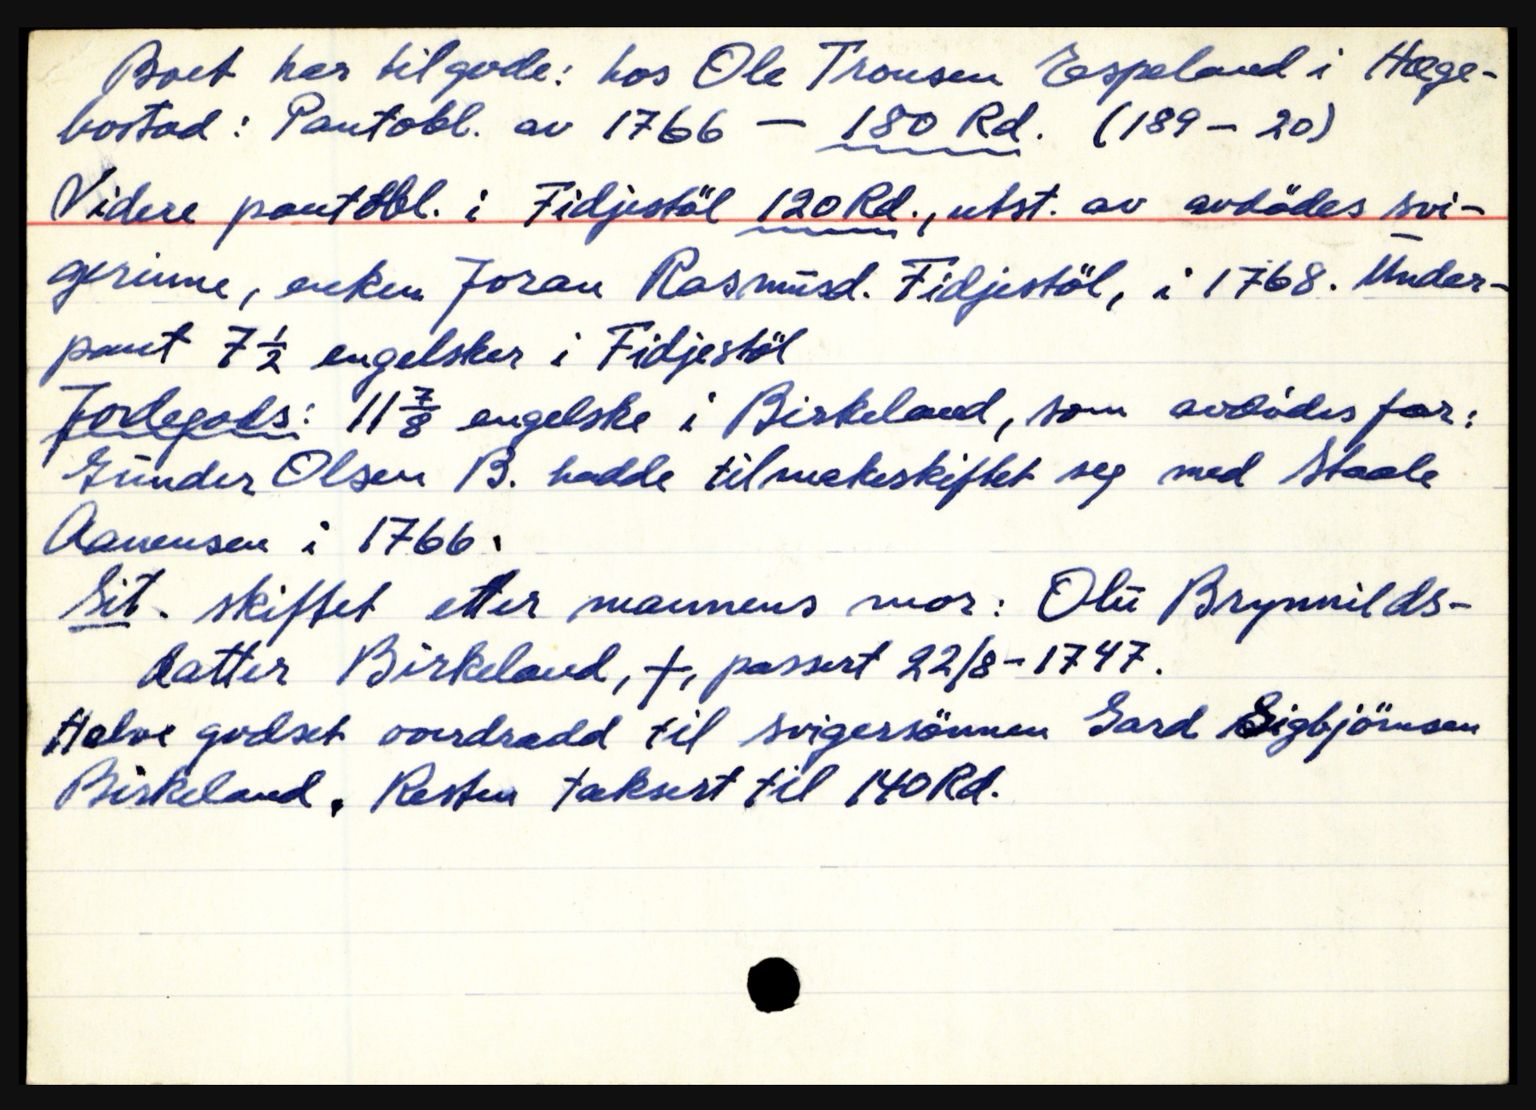 Boet har tilgode: hos Ole Tronsen Espeland i Hæge-
bostad: Pantobl. av 1766 — 180 Rd. (189 – 20)
Videre pantobl. i Fidjestöl 120 Rd., utst. av avdödes svi-
gerinne, enken Joran Rasmüsd. Fidjestöl, i 1768. Under-
pant 7 1/2 engelsker i Fidjestöl
Jordegods: 11 7/8 engelske i Birkeland, som avdödes far:
Günder Olsen B. hadde tilmakeskiftet seg med Staale
Aanensen i 1766.
Sit. skiftet etter mannens mor: Olü Brynnilds-
datter Birkeland, †, passert 22/8 – 1747.
Halve godset overdradd til svigersönnen Gard Sigbjörnsen
Birkeland. Resten taksert til 140 Rd.